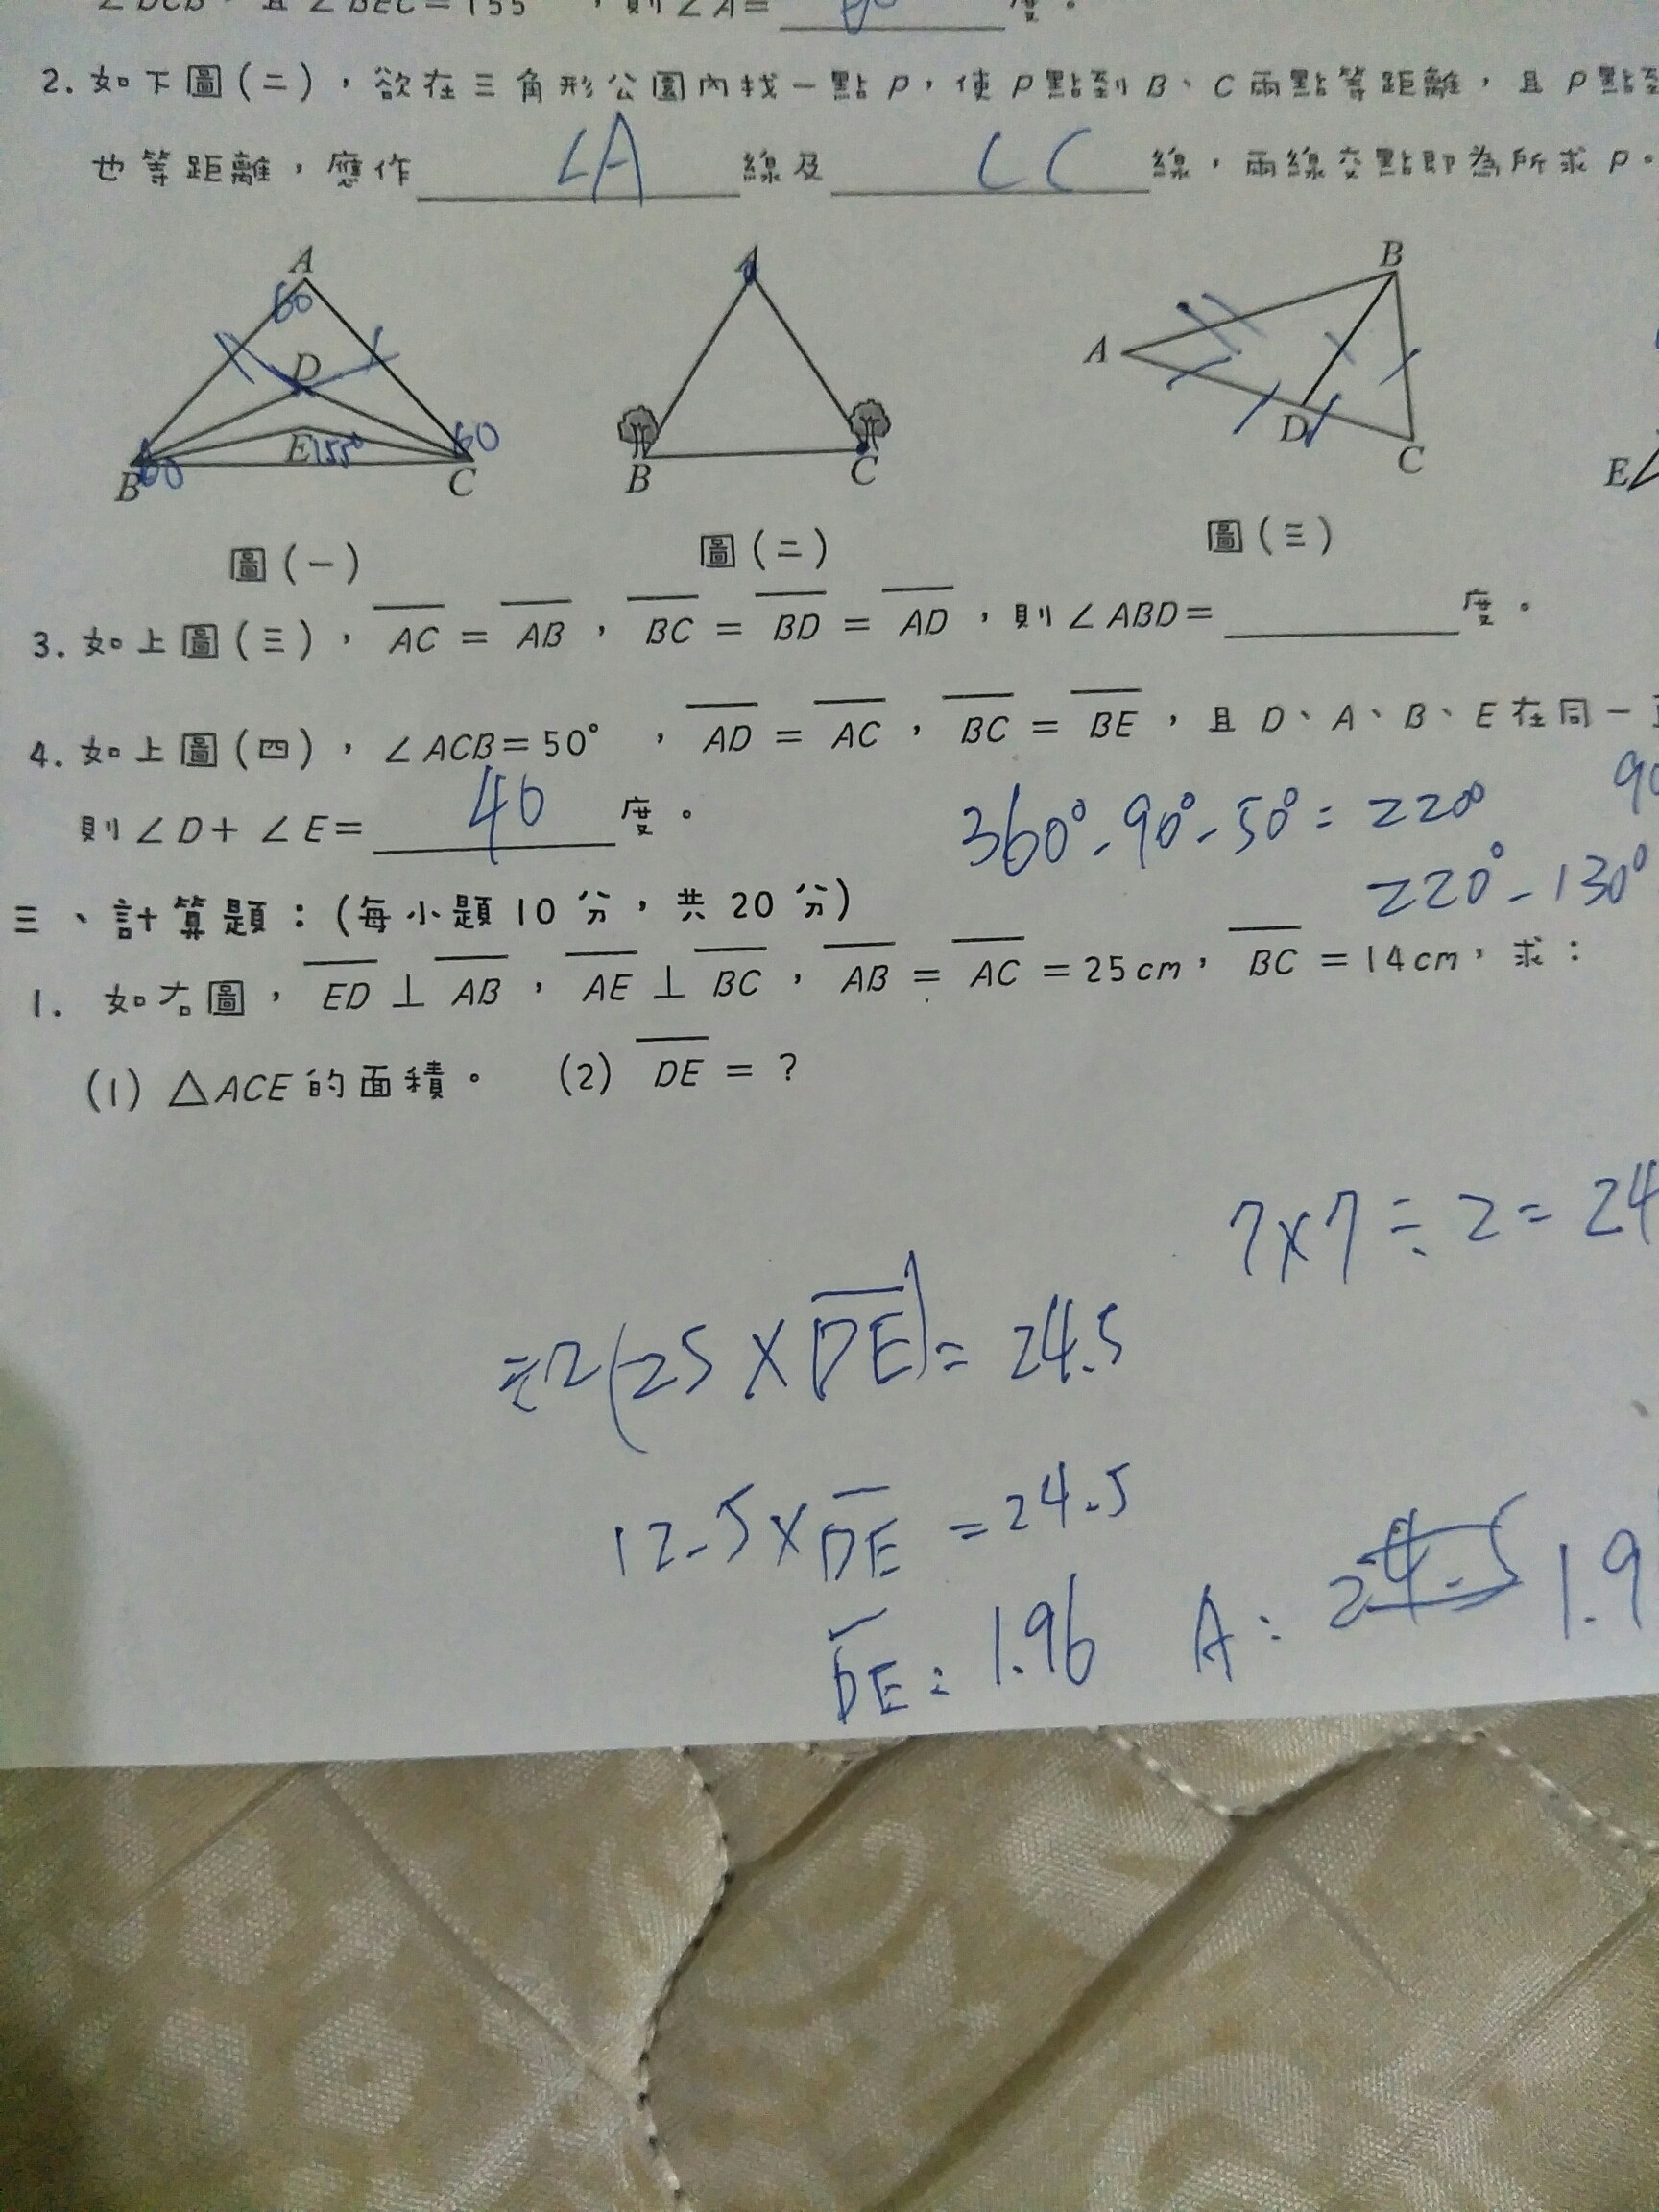 ∠DCB，且∠BEC=155°，則∠A=
度。
2. 如下圖(二)，欲在三角形公園內找一點P，使P點到B、C兩點等距離，且P點到
也等距離，應作 ∠A 線及 ∠C 線，兩線交點即為所求P。
A 60 D E 155° B 60 C 60
A B C
A B C D
E
圖(一) 圖(二) 圖(三)
3. 如上圖(三)，AC = AB，BC = BD = AD，則∠ABD= 度。
4. 如上圖(四)，∠ACB=50°，AD = AC，BC = BE，且D、A、B、E在同一
則∠D+∠E= 40 度。
360°-90°-50°=220°
220°-130°
三、計算題：(每小題10分，共20分)
1. 如右圖，ED⊥AB，AE⊥BC，AB = AC = 25cm，BC = 14cm，求：
(1) △ACE的面積。 (2) DE = ?
7×7÷2=24
÷2(25×DE)=24.5
12.5×DE=24.5
DE=1.96 A: 1.9